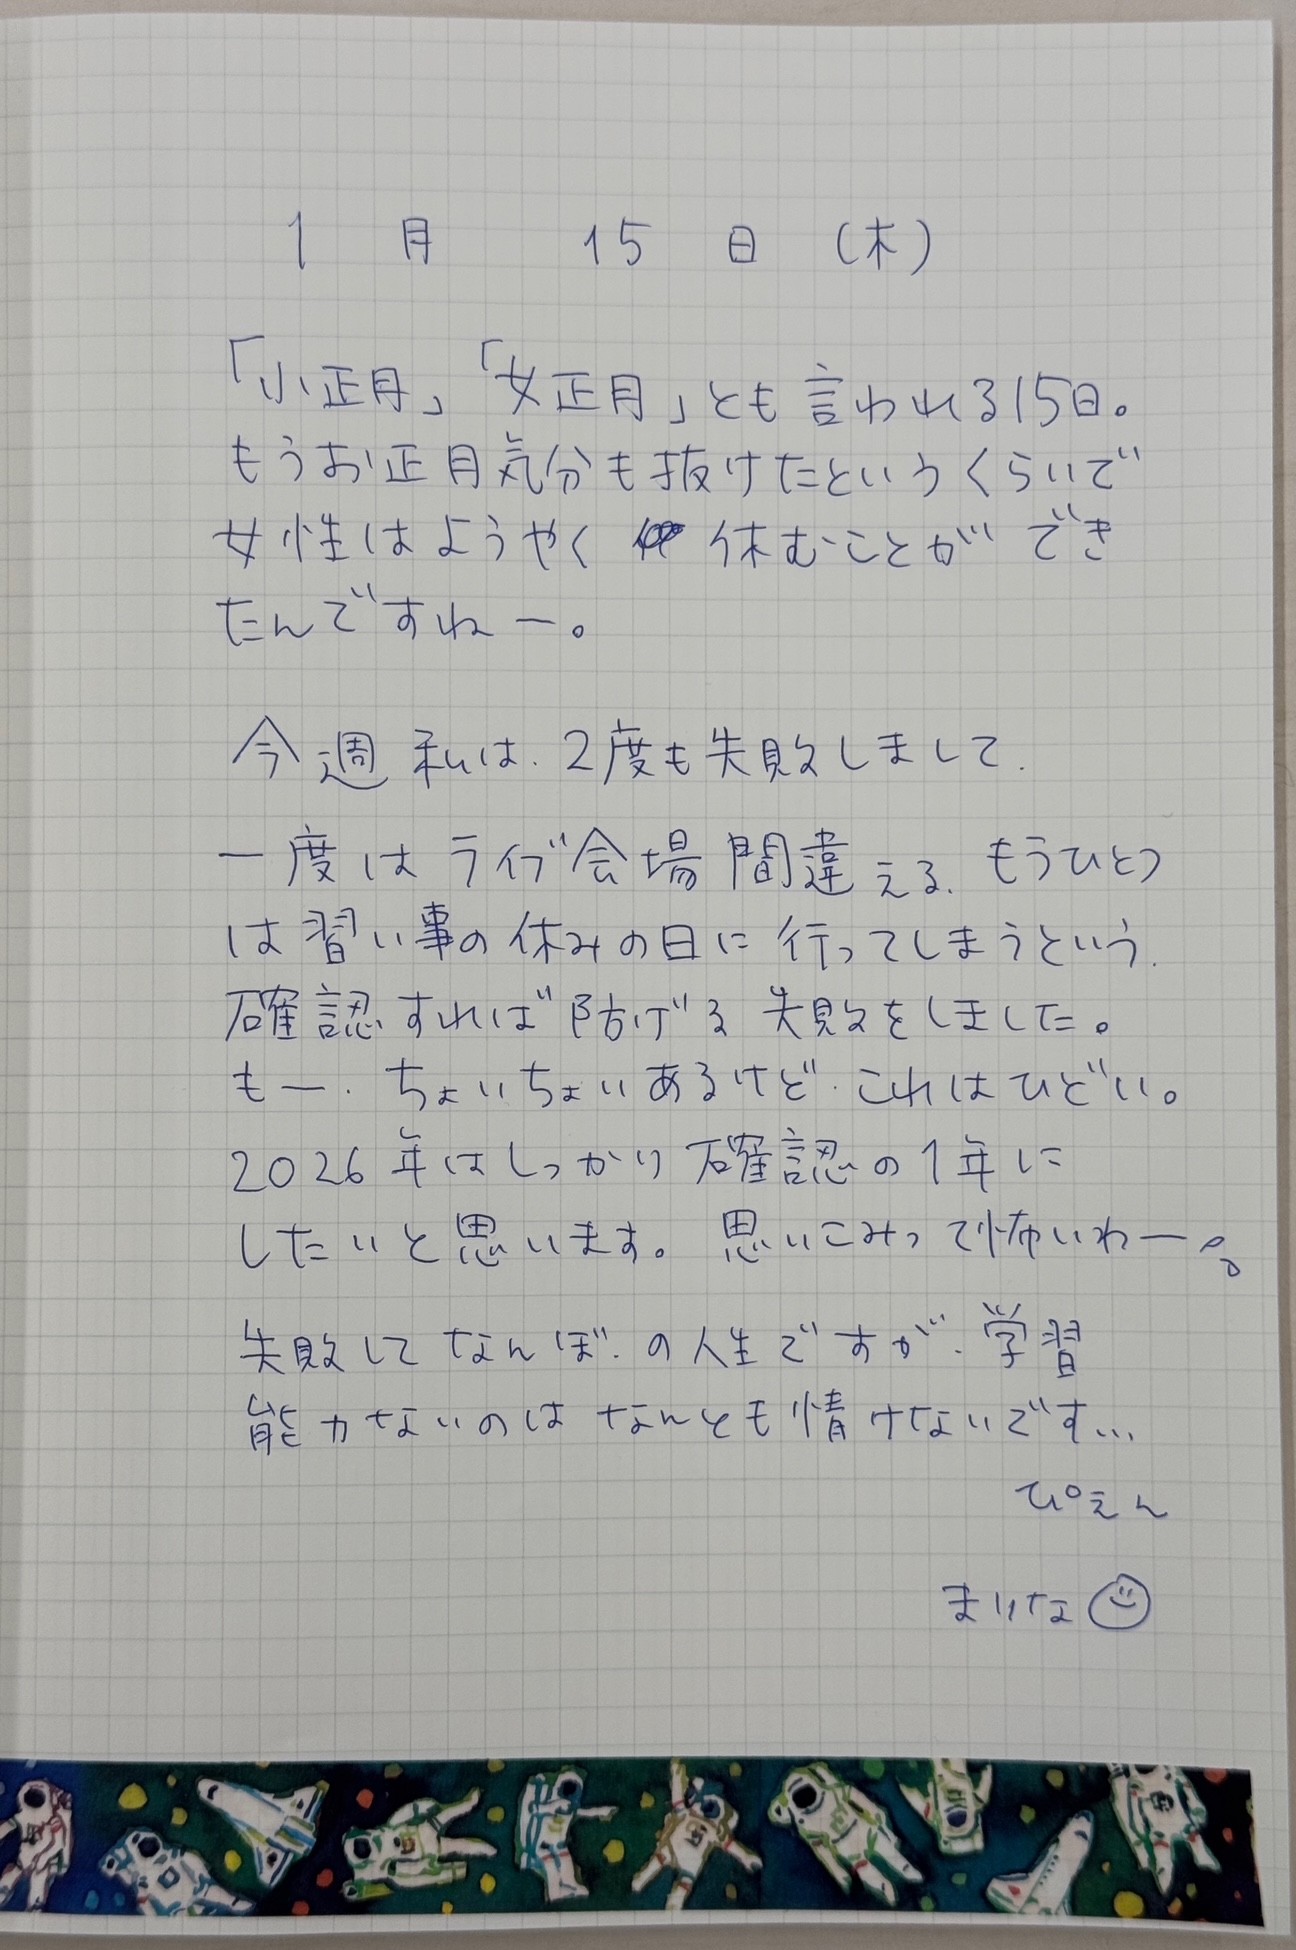 1月 15日(木)
「小正月」「女正月」とも言われる15日。
もうお正月気分も抜けたというくらいで
女性はようやく 休むことができ
たんですねー。
今週私は、2度も失敗しまして、
一度はライブ会場間違える、もうひとつ
は習い事の休みの日に行ってしまうという、
確認すれば防げる失敗をしました。
もー、ちょいちょいあるけど、これはひどい。
2026年はしっかり確認の1年に
したいと思います。思いこみって怖いわー。
失敗してなんぼ、の人生ですが、学習
能力ないのはなんとも情けないです…
ぴえん
まりな